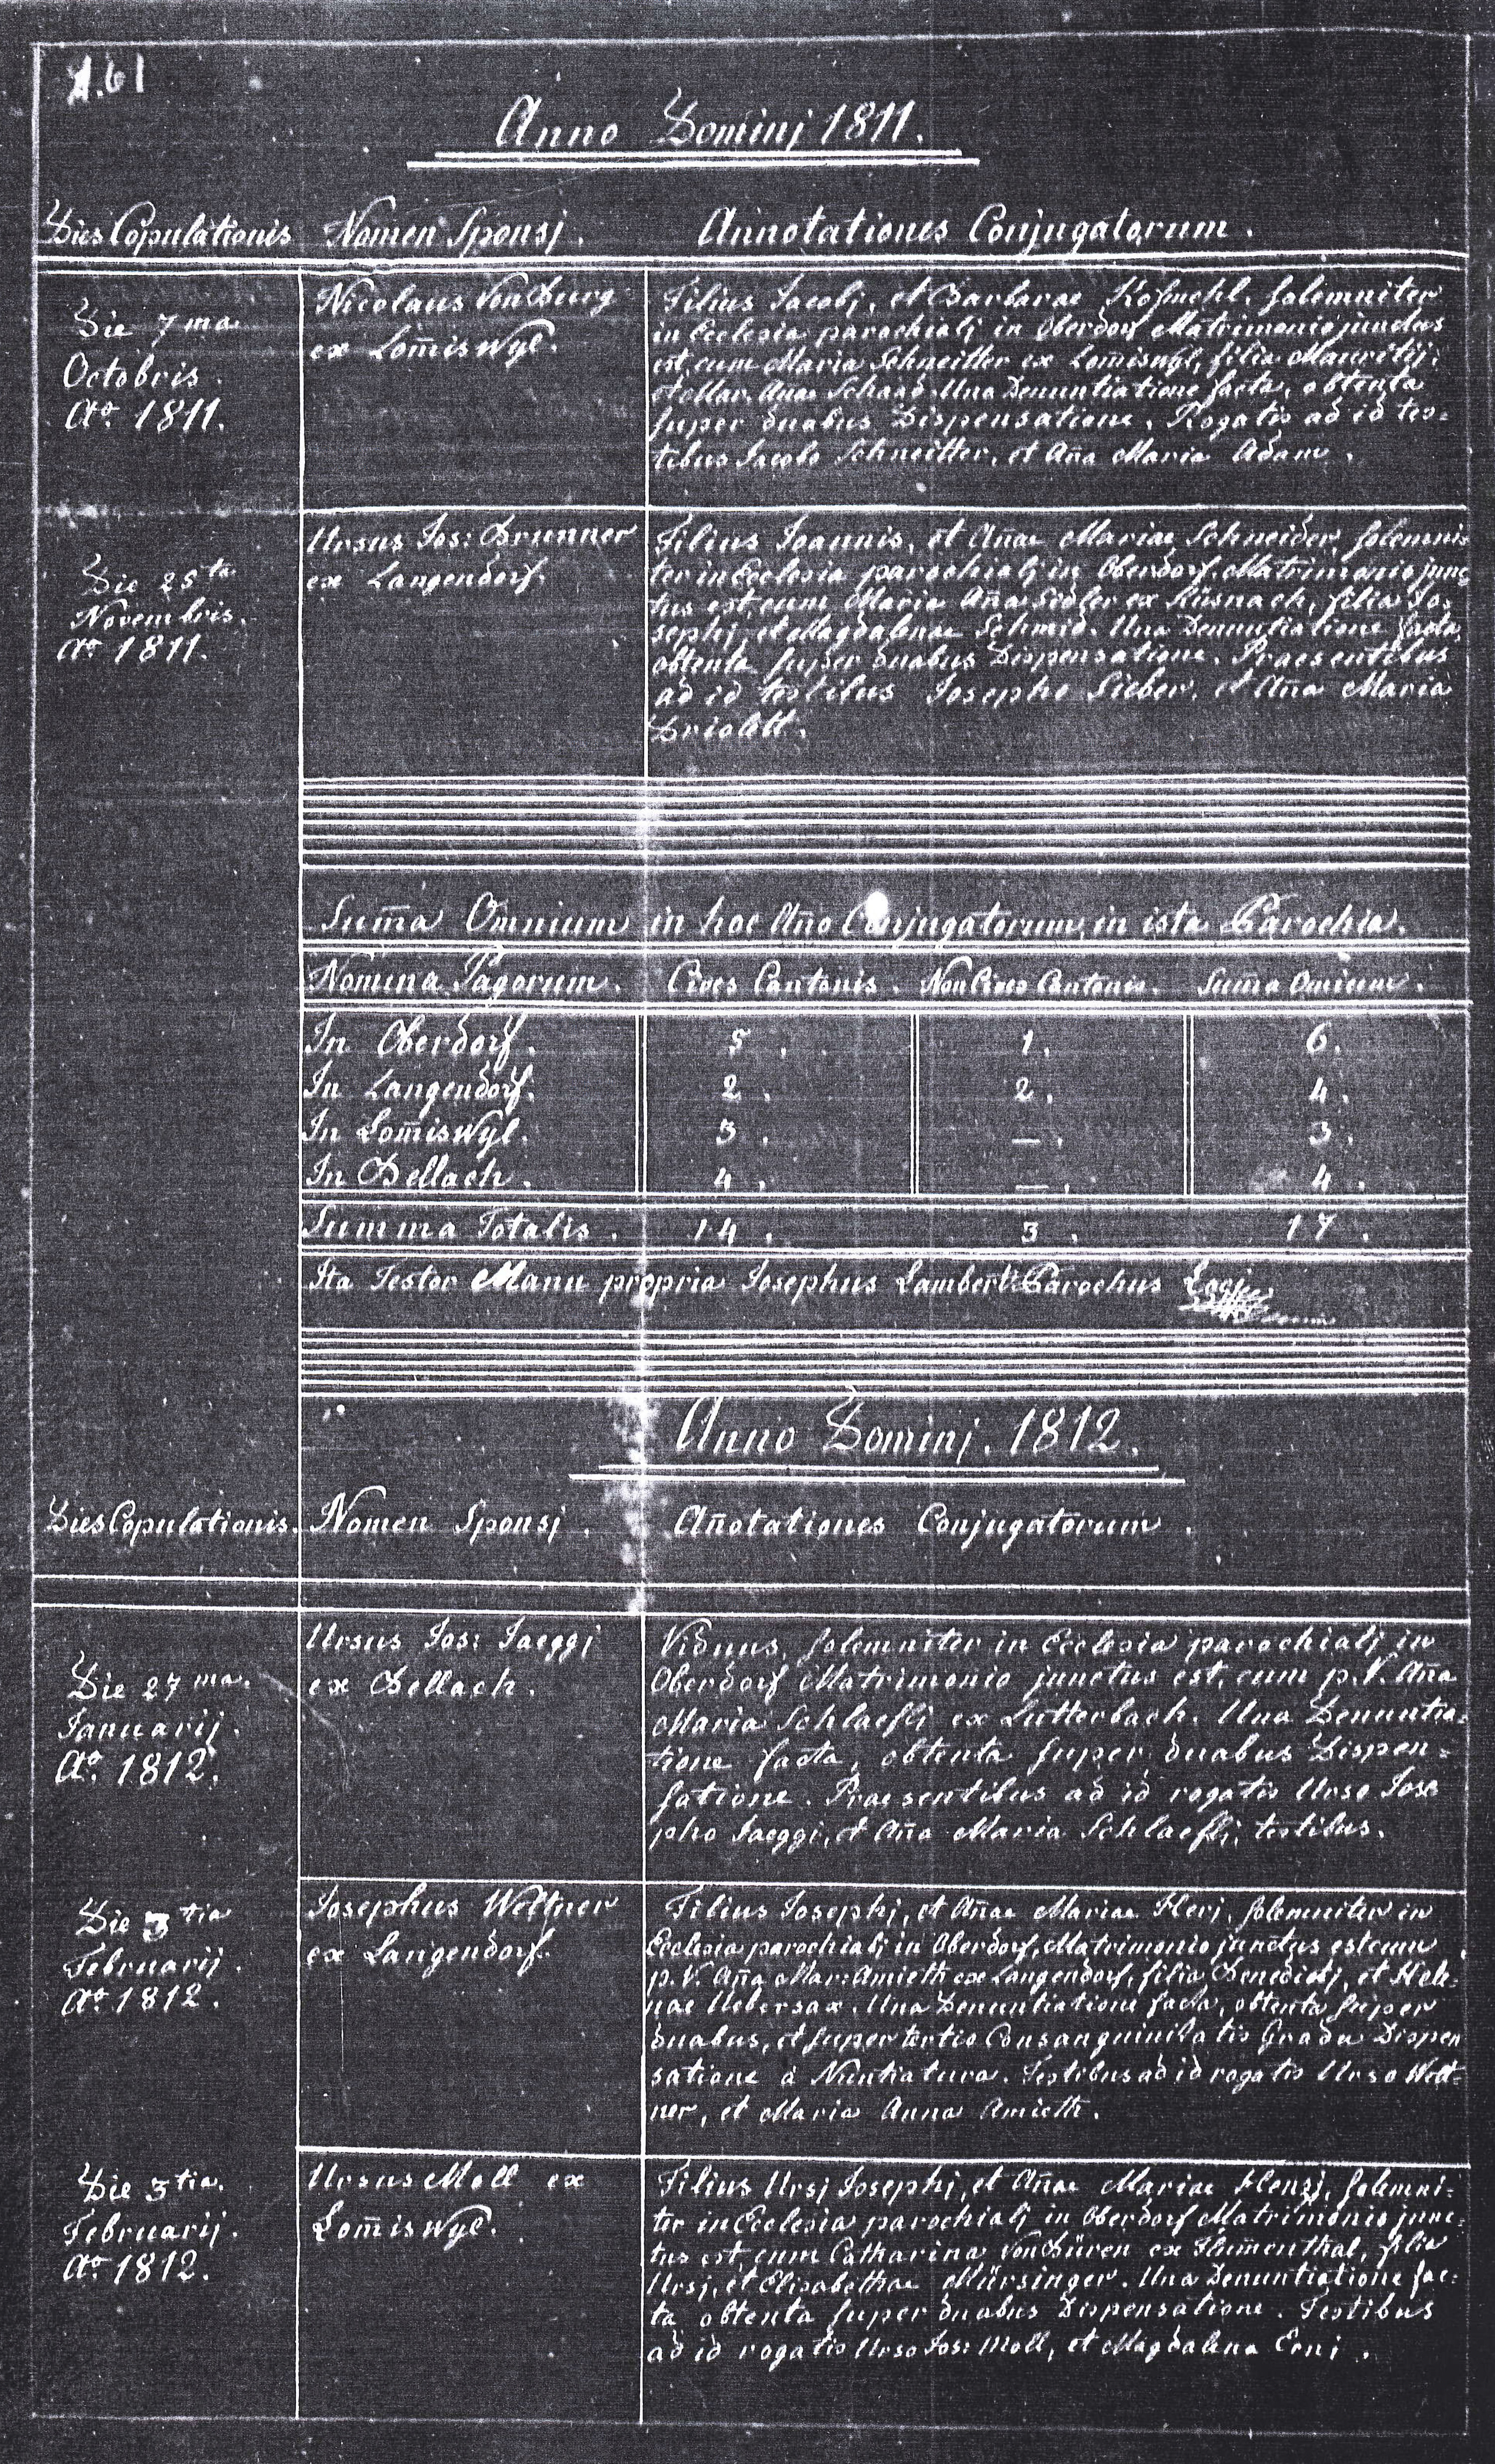 A.61
Anno Dominj 1811.
Dies Copulationis Nomen Sponsj. Annotationes Conjugatorum.
Die 7ma
Octobris.
Ao 1811.
Nicolaus Von Burg
ex Lom̃iswyl.
Filius Jacobj, et Barbarae Kofmehl, solemniter
in Ecclesia parochialj in Oberdorf Matrimonio junctus
est, cum Maria Schneitter ex Lom̃iswyl, filia Mauritij,
et Mar. Añae Schaad. Una Denuntiatione facta, obtenta
super duabus Dispensatione. Rogatis ad id tes=
tibus Jacobo Schneitter, et Aña Maria Adam.
Die 25ta
Novembris.
Ao 1811.
Ursus Jos: Brunner
ex Langendorf.
Filius Joannis, et Añae Mariae Schneider, solemni=
ter in Ecclesia parochialj in Oberdorf, Matrimonio junc=
tus est, cum Maria Aña Sidler ex Küsnach, filia Jo=
sephj, et Magdalenae Schmid. Una Denuntiatione facta,
obtenta super duabus Dispensatione. Praesentibus
ad id testibus Josepho Sieber, et Aña Maria
Sum̃a Omnium in hoc Año Conjugatorum, in ista Parochia.
Nomina Pagorum. Cives Cantonis. Non Cives Cantonis. Sum̃a Omium.
In Oberdorf. 5. 1. 6.
In Langendorf. 2. 2. 4.
In Lom̃iswyl. 3. —. 3.
In Bellach. 4. —. 4.
Summa Totalis. 14. 3. 17.
Ita Testor Manu propria Josephus Lambert Parochus
Anno Dominj. 1812.
Dies Copulationis. Nomen Sponsj. Añotationes Conjugatorum.
Die 27ma.
Januarij.
Ao. 1812.
Ursus Jos: Jaeggj
ex Bellach.
Viduus, solemniter in Ecclesia parochialj in
Oberdorf Matrimonio junctus est, cum p. V. Aña
Maria Schlaeflj ex Lütterbach. Una Denuntia=
tione facta, obtenta super duabus Dispen=
satione. Praesentibus ad id rogatis Urso Jose
pho Jaeggi, et Aña Maria Schlaeflj, testibus.
Die 3tia
Februarij.
Ao. 1812.
Josephus Weltner
ex Langendorf.
Filius Josephj, et Añae Mariae Herj, solemniter in
Ecclesia parochialj in Oberdorf, Matrimonio junctus est cum
p. V. Aña Mar: Amieth ex Langendorf, filia Benedictj, et Hele=
nae Uebersax. Una Denuntiatione facta, obtenta super
duabus, et super tertio Consanguinitatis Gradu Dispen
satione à Nuntiatura. Testibus ad id rogatis Urso Welt=
ner, et Maria Anna Amieth.
Die 3tia.
Februarij.
Ao 1812.
Ursus Moll ex
Lom̃iswyl.
Filius Ursj Josephj, et Añae Mariae Henzj, solemni=
ter in Ecclesia parochialj in Oberdorf Matrimonio junc=
tus est, cum Catharina Von Büren ex Flum̃enthal, filia
Ursj, et Elisabethae Mürsinger. Una Denuntiatione fac=
ta obtenta super duabus Dispensatione. Testibus
ad id rogatis Urso Jos: Moll, et Magdalena Erni.